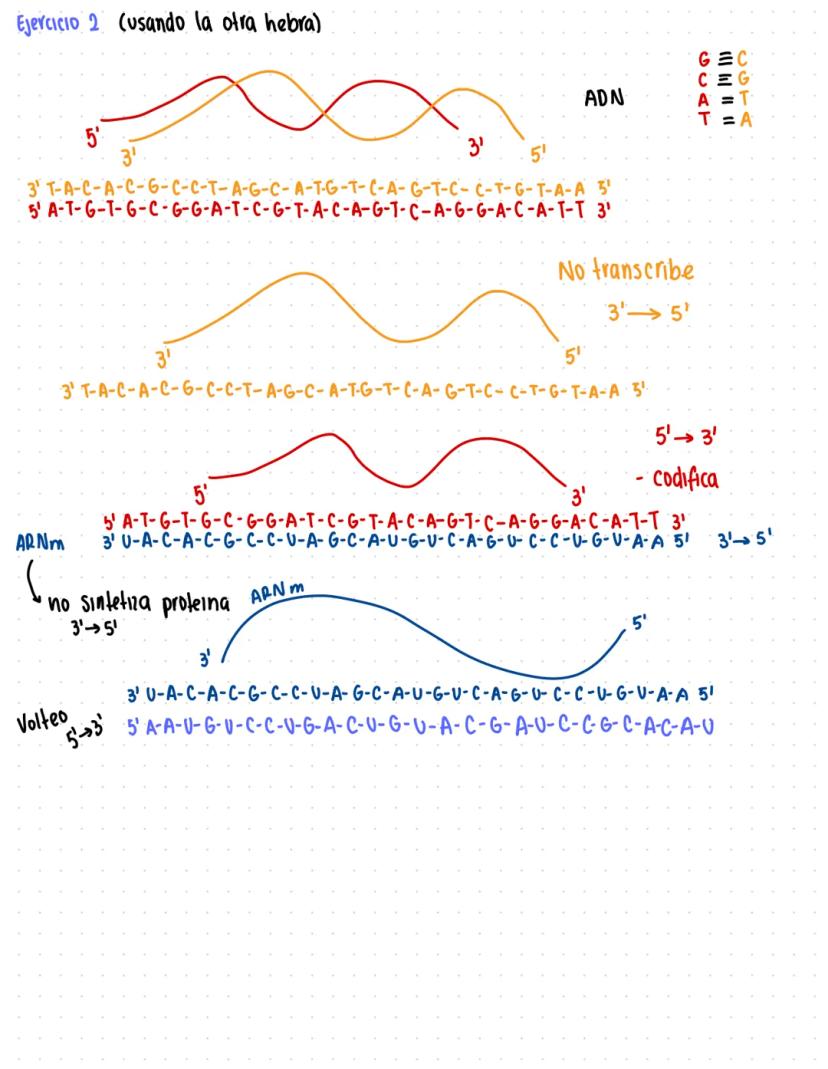 Ejercicio 2 (usando la otra hebra)
G ≡ C
C ≡ G
A = T
T = A
ADN
5' 3' 3' 5'
3' T-A-C-A-C-G-C-C-T-A-G-C-A-T-G-T-C-A-G-T-C-C-T-G-T-A-A 5'
5' A-T-G-T-G-C-G-G-A-T-C-G-T-A-C-A-G-T-C-A-G-G-A-C-A-T-T 3'
No transcribe
3' → 5'
3' 5'
3' T-A-C-A-C-G-C-C-T-A-G-C-A-T-G-T-C-A-G-T-C-C-T-G-T-A-A 5'
5' → 3'
- codifica
5' 3'
5' A-T-G-T-G-C-G-G-A-T-C-G-T-A-C-A-G-T-C-A-G-G-A-C-A-T-T 3'
ARNm 3' U-A-C-A-C-G-C-C-U-A-G-C-A-U-G-U-C-A-G-U-C-C-U-G-U-A-A 5' 3' → 5'
no sintetiza proteina
3' → 5'
ARNm
3' 5'
3' U-A-C-A-C-G-C-C-U-A-G-C-A-U-G-U-C-A-G-U-C-C-U-G-U-A-A 5'
Volteo 5' → 3'
5' A-A-U-G-U-C-C-U-G-A-C-U-G-U-A-C-G-A-U-C-C-G-C-A-C-A-U